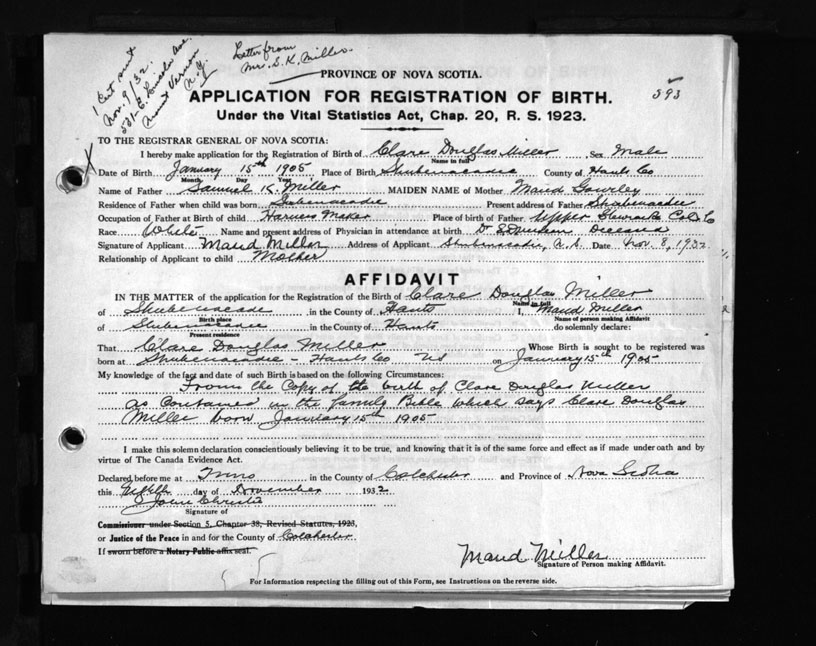 1 Cert sent
Nov. 9/32.
531-E. Lincoln Ave.
Mount Vernon
N.Y.
Letter from
Mrs. S. K. Miller.
393
PROVINCE OF NOVA SCOTIA.
APPLICATION FOR REGISTRATION OF BIRTH.
Under the Vital Statistics Act, Chap. 20, R. S. 1923.
TO THE REGISTRAR GENERAL OF NOVA SCOTIA:
I hereby make application for the Registration of Birth of Clare Douglas Miller Sex Male
Name in full
Date of Birth January 15th 1905 Place of Birth Shubenacadie County of Hants Co
Month Day Year
Name of Father Samuel K. Miller MAIDEN NAME of Mother Maud Gourley
Residence of Father when child was born Shubenacadie Present address of Father Shubenacadie
Occupation of Father at Birth of child Harness Maker Place of birth of Father Upper Stewiacke Col. Co
Race White Name and present address of Physician in attendance at birth Dr Deceased
Signature of Applicant Maud Miller Address of Applicant Shubenacadie, N.S. Date Nov. 8, 1932
Relationship of Applicant to child Mother
AFFIDAVIT
IN THE MATTER of the application for the Registration of the Birth of Clare Douglas Miller
Name in full
of Shubenacadie in the County of Hants I, Maud Miller
Birth place Name of person making Affidavit
of Shubenacadie in the County of Hants do solemnly declare:
Present residence
That Clare Douglas Miller Whose Birth is sought to be registered was
born at Shubenacadie - Hants Co NS on January 15th 1905
My knowledge of the fact and date of such Birth is based on the following Circumstances:
From the Copy of the birth of Clare Douglas Miller
as Contained in the family Bible which says Clare Douglas
Miller born January 15th 1905
I make this solemn declaration conscientiously believing it to be true, and knowing that it is of the same force and effect as if made under oath and by
virtue of The Canada Evidence Act.
Declared before me at Truro in the County of Colchester and Province of Nova Scotia
this day of November 1932
John Christie
Signature of
Commissioner under Section 5, Chapter 38, Revised Statutes, 1923,
or Justice of the Peace in and for the County of Colchester.
If sworn before a Notary Public affix seal.
Maud Miller
Signature of Person making Affidavit.
For Information respecting the filling out of this Form, see Instructions on the reverse side.